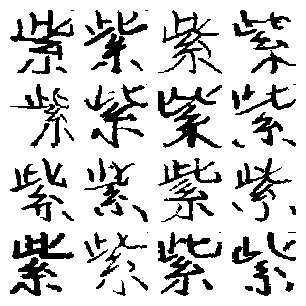 紫紫紫紫
紫紫紫紫
紫紫紫紫
紫紫紫紫